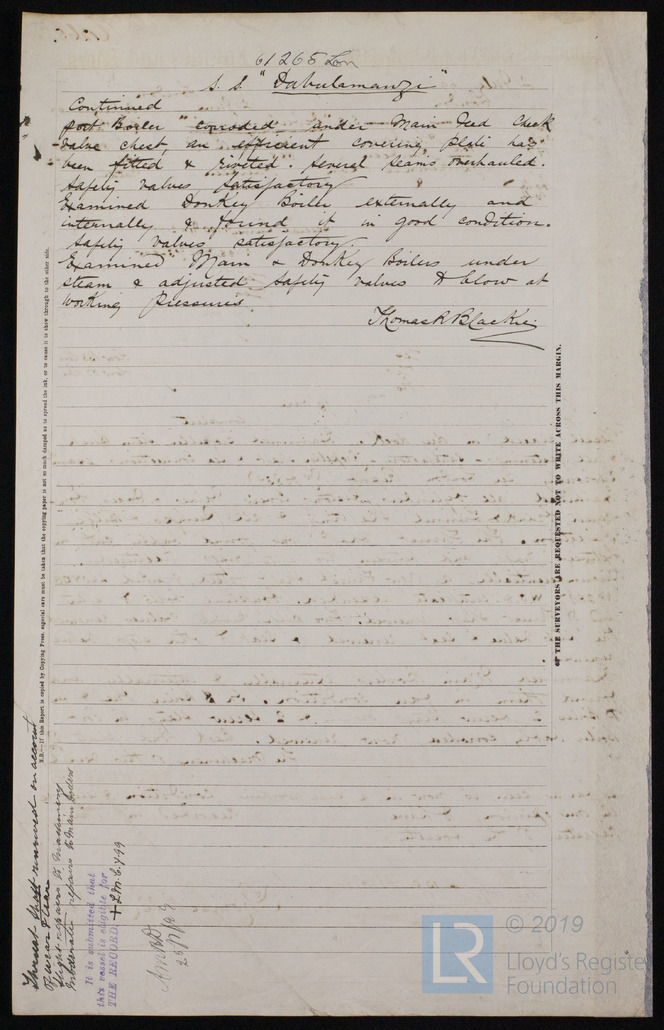 61265 Lon
S. S. "Dabulamanzi"
Continued
port Boiler corroded under Main Feed Check
valve chest, an efficient covering plate has
been fitted & riveted. Several seams overhauled.
Safety valves, satisfactory
Examined Donkey Boiler externally and
internally & found it in good condition.
Safety valves satisfactory.
Examined Main & Donkey Boilers under
steam & adjusted safety valves to blow at
working pressures.
Thomas R Blackie
OF THE SURVEYORS ARE REQUESTED NOT TO WRITE ACROSS THIS MARGIN.
N.B.—If this Report is copied by Copying Press, especial care must be taken that the copying paper is not so much damped as to spread the ink, or to cause it to show through to the other side.
Thrust shaft renewed on account
of wear & tear
Slight repairs to Machinery
Moderate repairs to Main boilers
It is submitted that
this vessel is eligible for
THE RECORD. + L.M.C. 7.99
© 2019
LR
Lloyd's Register
Foundation